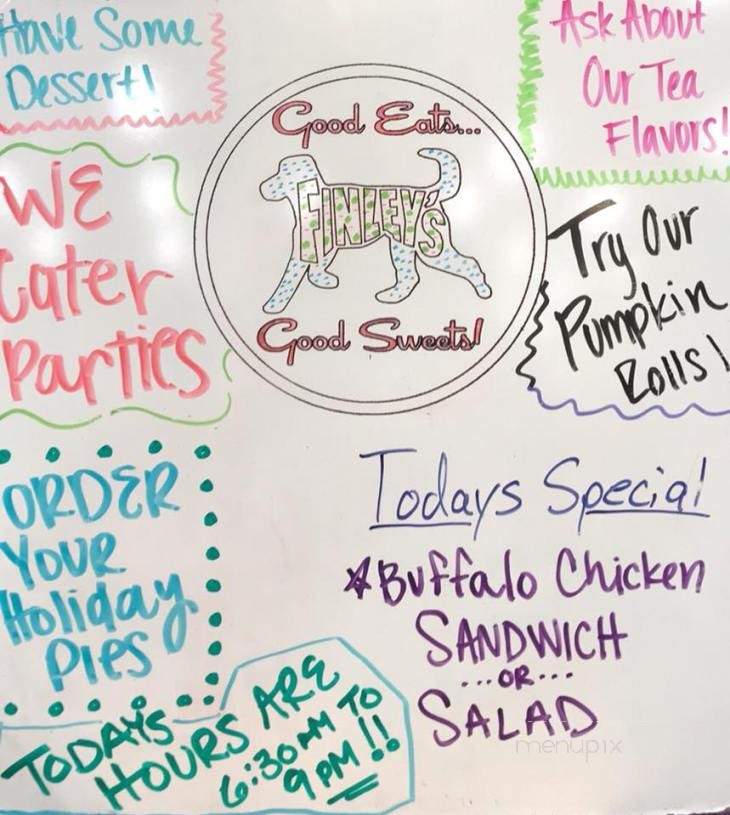 Have Some
Dessert!
Ask About
Our Tea
Flavors!
Good Eats...
FINLEY'S
Good Sweets!
WE
Cater
Parties
Try Our
Pumpkin
Rolls!
ORDER
YOUR
Holiday
Pies
Todays Special
*Buffalo Chicken
SANDWICH
...OR...
SALAD
TODAY'S
HOURS ARE
6:30AM TO
9PM!!
menupix